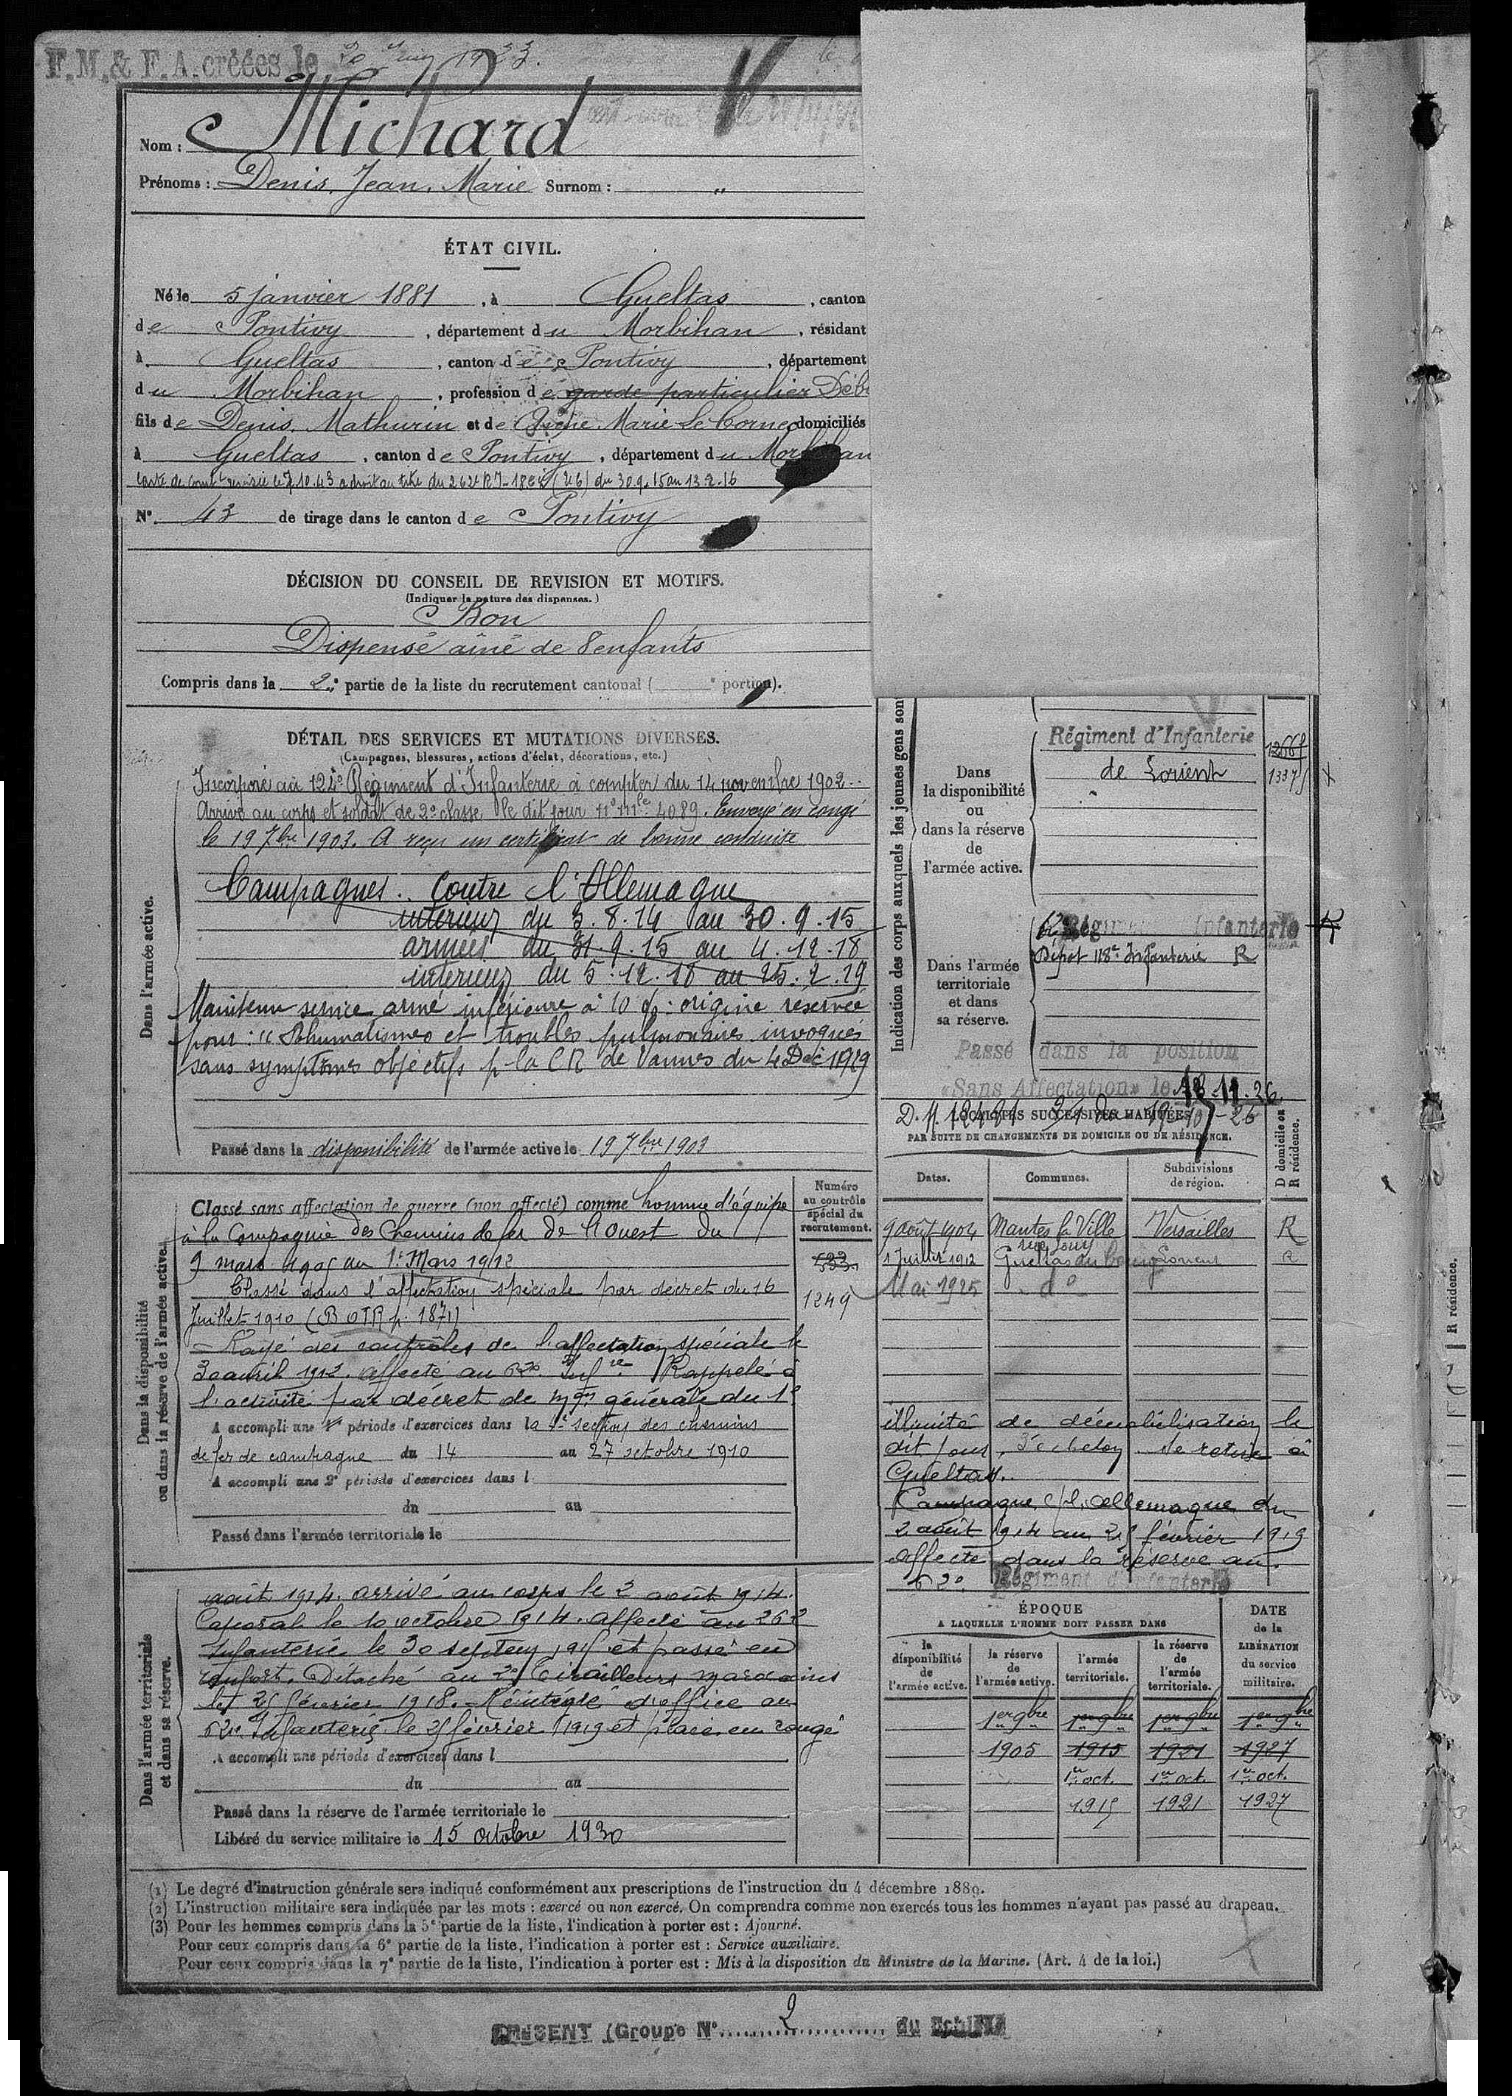 F.M. & F.A. créées le 1923.
Nom : Michard
Prénoms : Denis, Jean, Marie Surnom : "
ÉTAT CIVIL.
Né le 5 janvier 1881, à Gueltas, canton
de Pontivy, département du Morbihan, résidant
à Gueltas, canton de Pontivy, département
du Morbihan, profession de garde particulier
fils de Denis, Mathurin et de Marie Le Cornec domiciliés
à Gueltas, canton de Pontivy, département du Morbihan
N° 43 de tirage dans le canton de Pontivy
DÉCISION DU CONSEIL DE REVISION ET MOTIFS.
(Indiquer la nature des dispenses.)
Bon
Dispensé aîné de 8 enfants
Compris dans la 2e partie de la liste du recrutement cantonal ( e portion).
DÉTAIL DES SERVICES ET MUTATIONS DIVERSES.
(Campagnes, blessures, actions d'éclat, décorations, etc.)
Dans l'armée active.
Incorporé au 124e Régiment d'Infanterie à compter du 14 novembre 1902.
Arrivé au corps et soldat de 2e classe le dit jour nº mle 4089. Envoyé en congé
le 19 7bre 1903. A reçu un certificat de bonne conduite
Campagnes. Contre l'Allemagne
intérieur du 3.8.14 au 30.9.15
armées du 31.9.15 au 4.12.18
intérieur du 5.12.18 au 25.2.19
Maintenu service armé inférieure à 10 % : origine réservée
pour : " Rhumatismes et troubles pulmonaires invoqués
sans symptômes objectifs p. la CR de Vannes du 4 Dec 1929
Passé dans la disponibilité de l'armée active le 19 7bre 1903
Indication des corps auxquels les jeunes gens sont
Dans
la disponibilité
ou
dans la réserve
de
l'armée active.
Régiment d'Infanterie
de Lorient
Dans l'armée
territoriale
et dans
sa réserve.
Infanterie
Dépôt 118e Infanterie R
Passé dans la position
«Sans Affectation» le 18.11.26
LOCALITÉS SUCCESSIVES HABITÉES
PAR SUITE DE CHANGEMENTS DE DOMICILE OU DE RÉSIDENCE.
D domicile ou
R résidence.
Dates. Communes. Subdivisions
de région.
9 août 1904 Mantes la Ville Versailles R
1 Juillet 1912 Gueltas au bourg Lorient
Mai 1925 do
Numéro
au contrôle
spécial du
recrutement.
1249
Dans la disponibilité
ou dans la réserve de l'armée active.
Classé sans affectation de guerre (non affecté) comme homme d'équipe
à la Compagnie des Chemins de fer de l'Ouest du
9 mars 1905 au 1er Mars 1912
Classé dans l'affectation spéciale par décret du 16
Juillet 1910
Rayé des contrôles de l'affectation spéciale le
30 avril 1912, affecté au 62e Infie Rappelé à
l'activité par décret de mon générale du 1er
A accompli une 1e période d'exercices dans la 4e section des chemins
de fer de campagne du 14 au 27 octobre 1910
A accompli une 2e période d'exercices dans l
du au
Passé dans l'armée territoriale le
illimité de démobilisation le
dit jour, 3e échelon se retire à
Gueltas.
Campagne c/ l'allemagne du
2 août 1914 au 25 février 1919
affecté dans la réserve au
62e Régiment d'Infanterie
Dans l'armée territoriale
et dans sa réserve.
août 1914. arrivé au corps le 3 août 1914.
Caporal le 10 octobre 1914. affecté au 262
Infanterie le 30 septem 1915 et passé en
renfort. Détaché au 2e Tirailleurs marocains
le 25 février 1918. Réintégré d'office au
62e Infanterie le 25 février 1919 et placé en congé
A accompli une période d'exercices dans l
du au
Passé dans la réserve de l'armée territoriale le
Libéré du service militaire le 15 octobre 1930
ÉPOQUE
A LAQUELLE L'HOMME DOIT PASSER DANS
DATE
de la
LIBÉRATION
du service
militaire.
la
disponibilité
de
l'armée active.
la réserve
de
l'armée active.
l'armée
territoriale.
la réserve
de
l'armée
territoriale.
1er 9bre 1er 9bre 1er 9bre 1er 9bre
1905 1915 1921 1927
1er oct. 1er oct. 1er oct.
1915 1921 1927
(1) Le degré d'instruction générale sera indiqué conformément aux prescriptions de l'instruction du 4 décembre 1889.
(2) L'instruction militaire sera indiquée par les mots : exercé ou non exercé. On comprendra comme non exercés tous les hommes n'ayant pas passé au drapeau.
(3) Pour les hommes compris dans la 5e partie de la liste, l'indication à porter est : Ajourné.
Pour ceux compris dans la 6e partie de la liste, l'indication à porter est : Service auxiliaire.
Pour ceux compris dans la 7e partie de la liste, l'indication à porter est : Mis à la disposition du Ministre de la Marine. (Art. 4 de la loi.)
PRÉSENT (Groupe N° 2 du
R résidence.